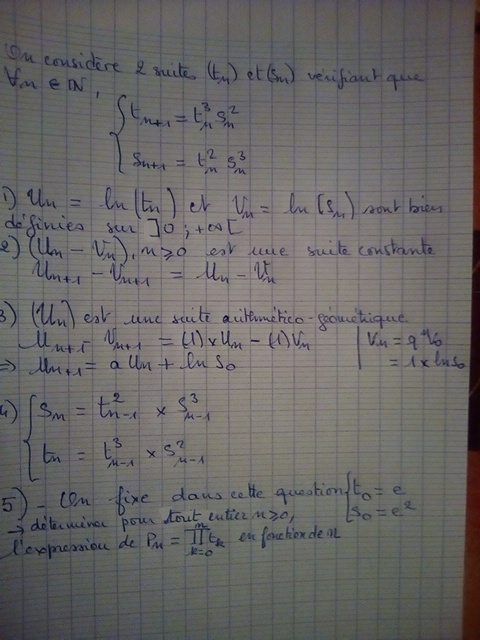 On considère 2 suites (tn) et (sn) vérifiant que
∀n ∈ ℕ,
{ t_{n+1} = t_n^3 s_n^2
s_{n+1} = t_n^2 s_n^3
1) Un = ln(tn) et Vn = ln(sn) sont bien
définies sur ]0 ; +∞[
2) (Un - Vn), n ≥ 0 est une suite constante
U_{n+1} - V_{n+1} = Un - Vn
3) (Un) est une suite arithmético-géométrique
U_{n+1} - V_{n+1} = (1)×Un - (1)Vn | Vn = q^n V0
⇒ U_{n+1} = a Un + ln S0 | = 1 × ln S0
4) { Sn = t_{n-1}^2 × S_{n-1}^3
tn = t_{n-1}^3 × S_{n-1}^2
5) - On fixe dans cette question { t0 = e
→ déterminer pour tout entier n ≥ 0, S0 = e^2
l'expression de Pn = ∏_{k=0}^{n} tk en fonction de n